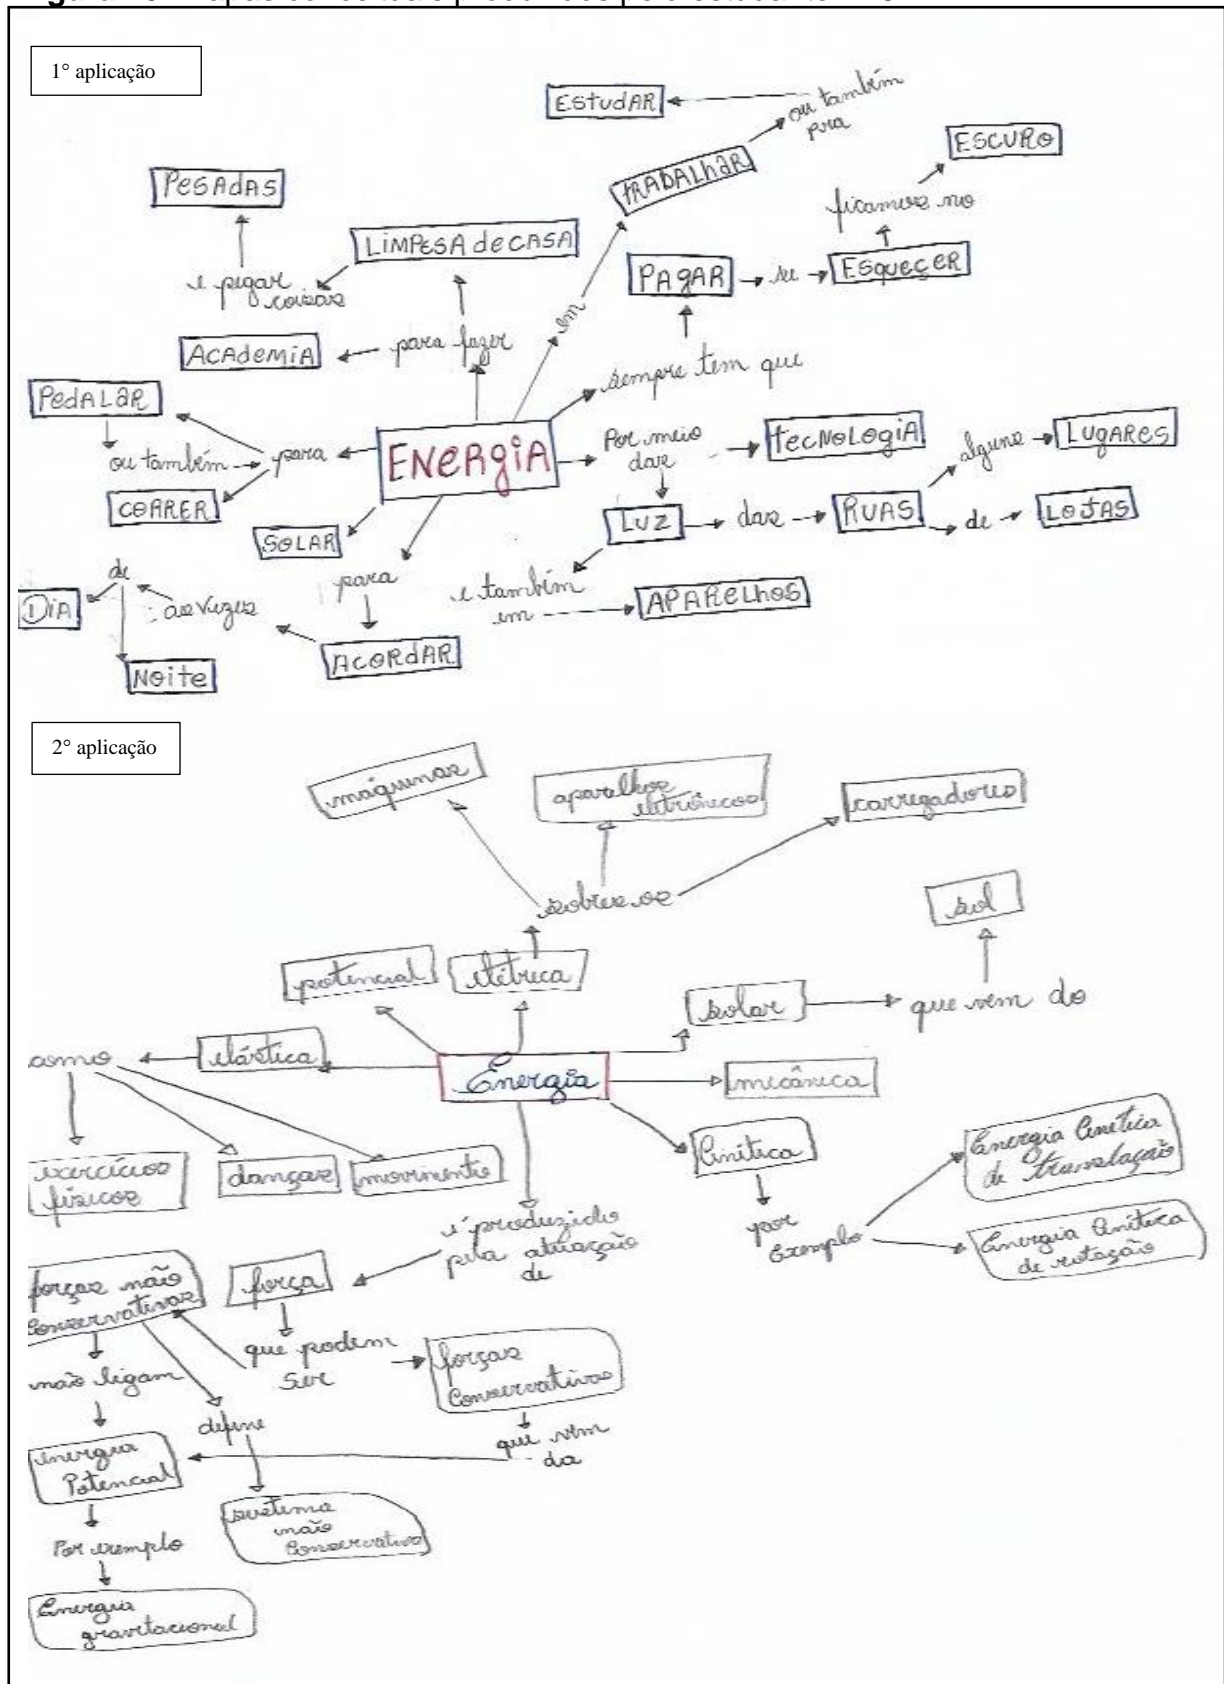 1° aplicação
EstudAR
ou também
pra
ESCURO
TRABALhaR
PESAdAS
ficamos no
LIMPESA de CASA
PAGAR
se
ESqueçER
e pegar
coisas
em
ACAdemiA
para fazer
sempre tem que
PedALaR
ENERgiA
Por meio
das
tecNoLogiA
alguns
LUgARes
ou também
para
CORRER
LUZ
das
RUAS
de
LOJAS
SOLAR
de
para
e também
em
APARELhos
DiA
as vezes
ACORdAR
Noite
2° aplicação
máquinas
aparelhos
eletrônicos
carregadores
sobres os
sol
potencial
elétrica
solar
que vem do
como
elástica
Energia
mecânica
Cinética
Energia Cinética
de translação
exercícios
físicos
danças
movimento
é produzido
pela atuação
de
por
Exemplo
Energia Cinética
de rotação
forças não
Conservativas
força
que podem
ser
forças
Conservativas
não ligam
define
que vem
da
energia
Potencial
sistema
não
Conservativo
Por exemplo
Energia
gravitacional